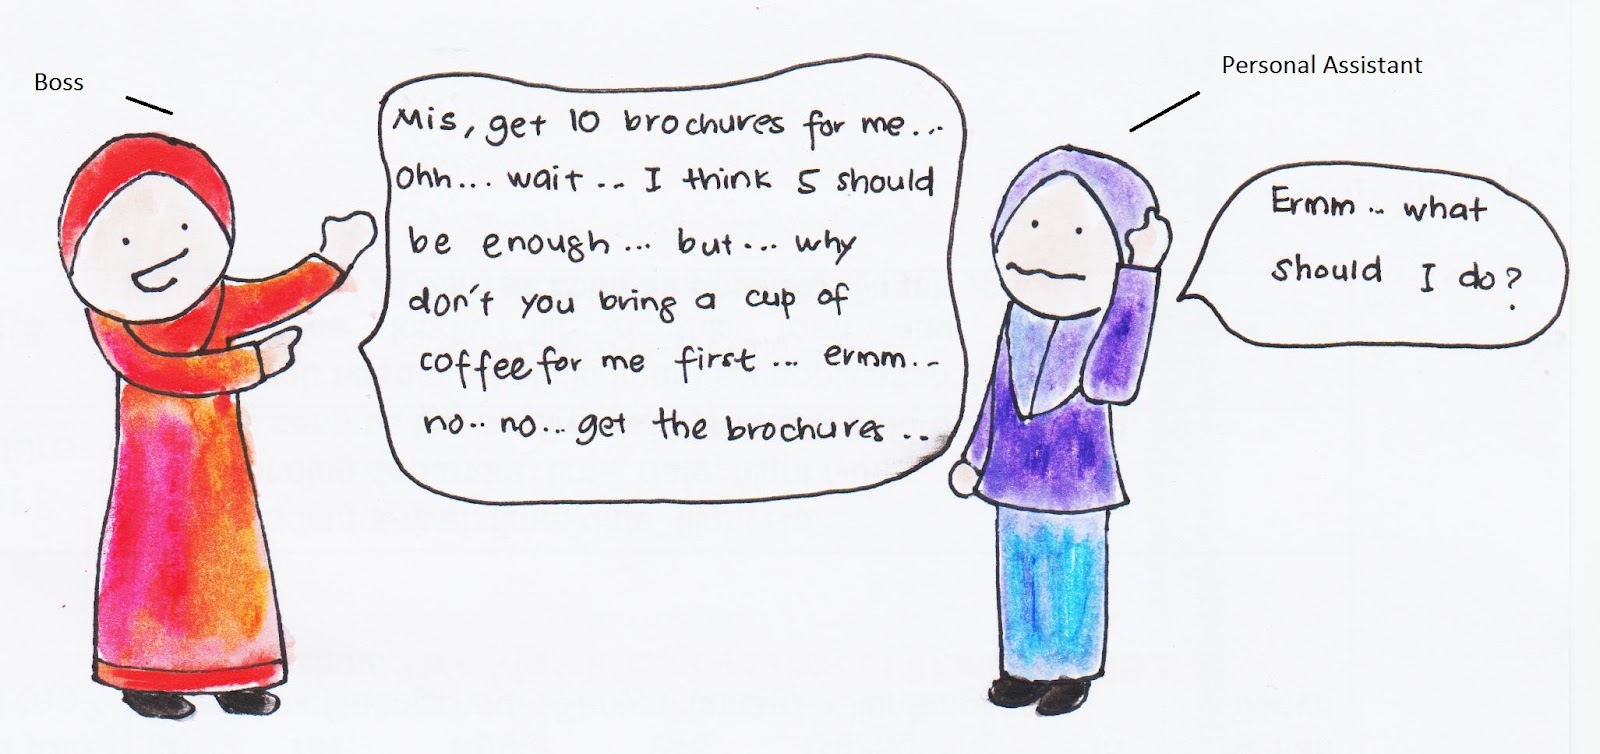 Boss
Personal Assistant
Mis, get 10 brochures for me...
Ohh... wait... I think 5 should
be enough... but... why
don't you bring a cup of
coffee for me first... ermm..
no.. no... get the brochures..
Ermm... what
should I do?